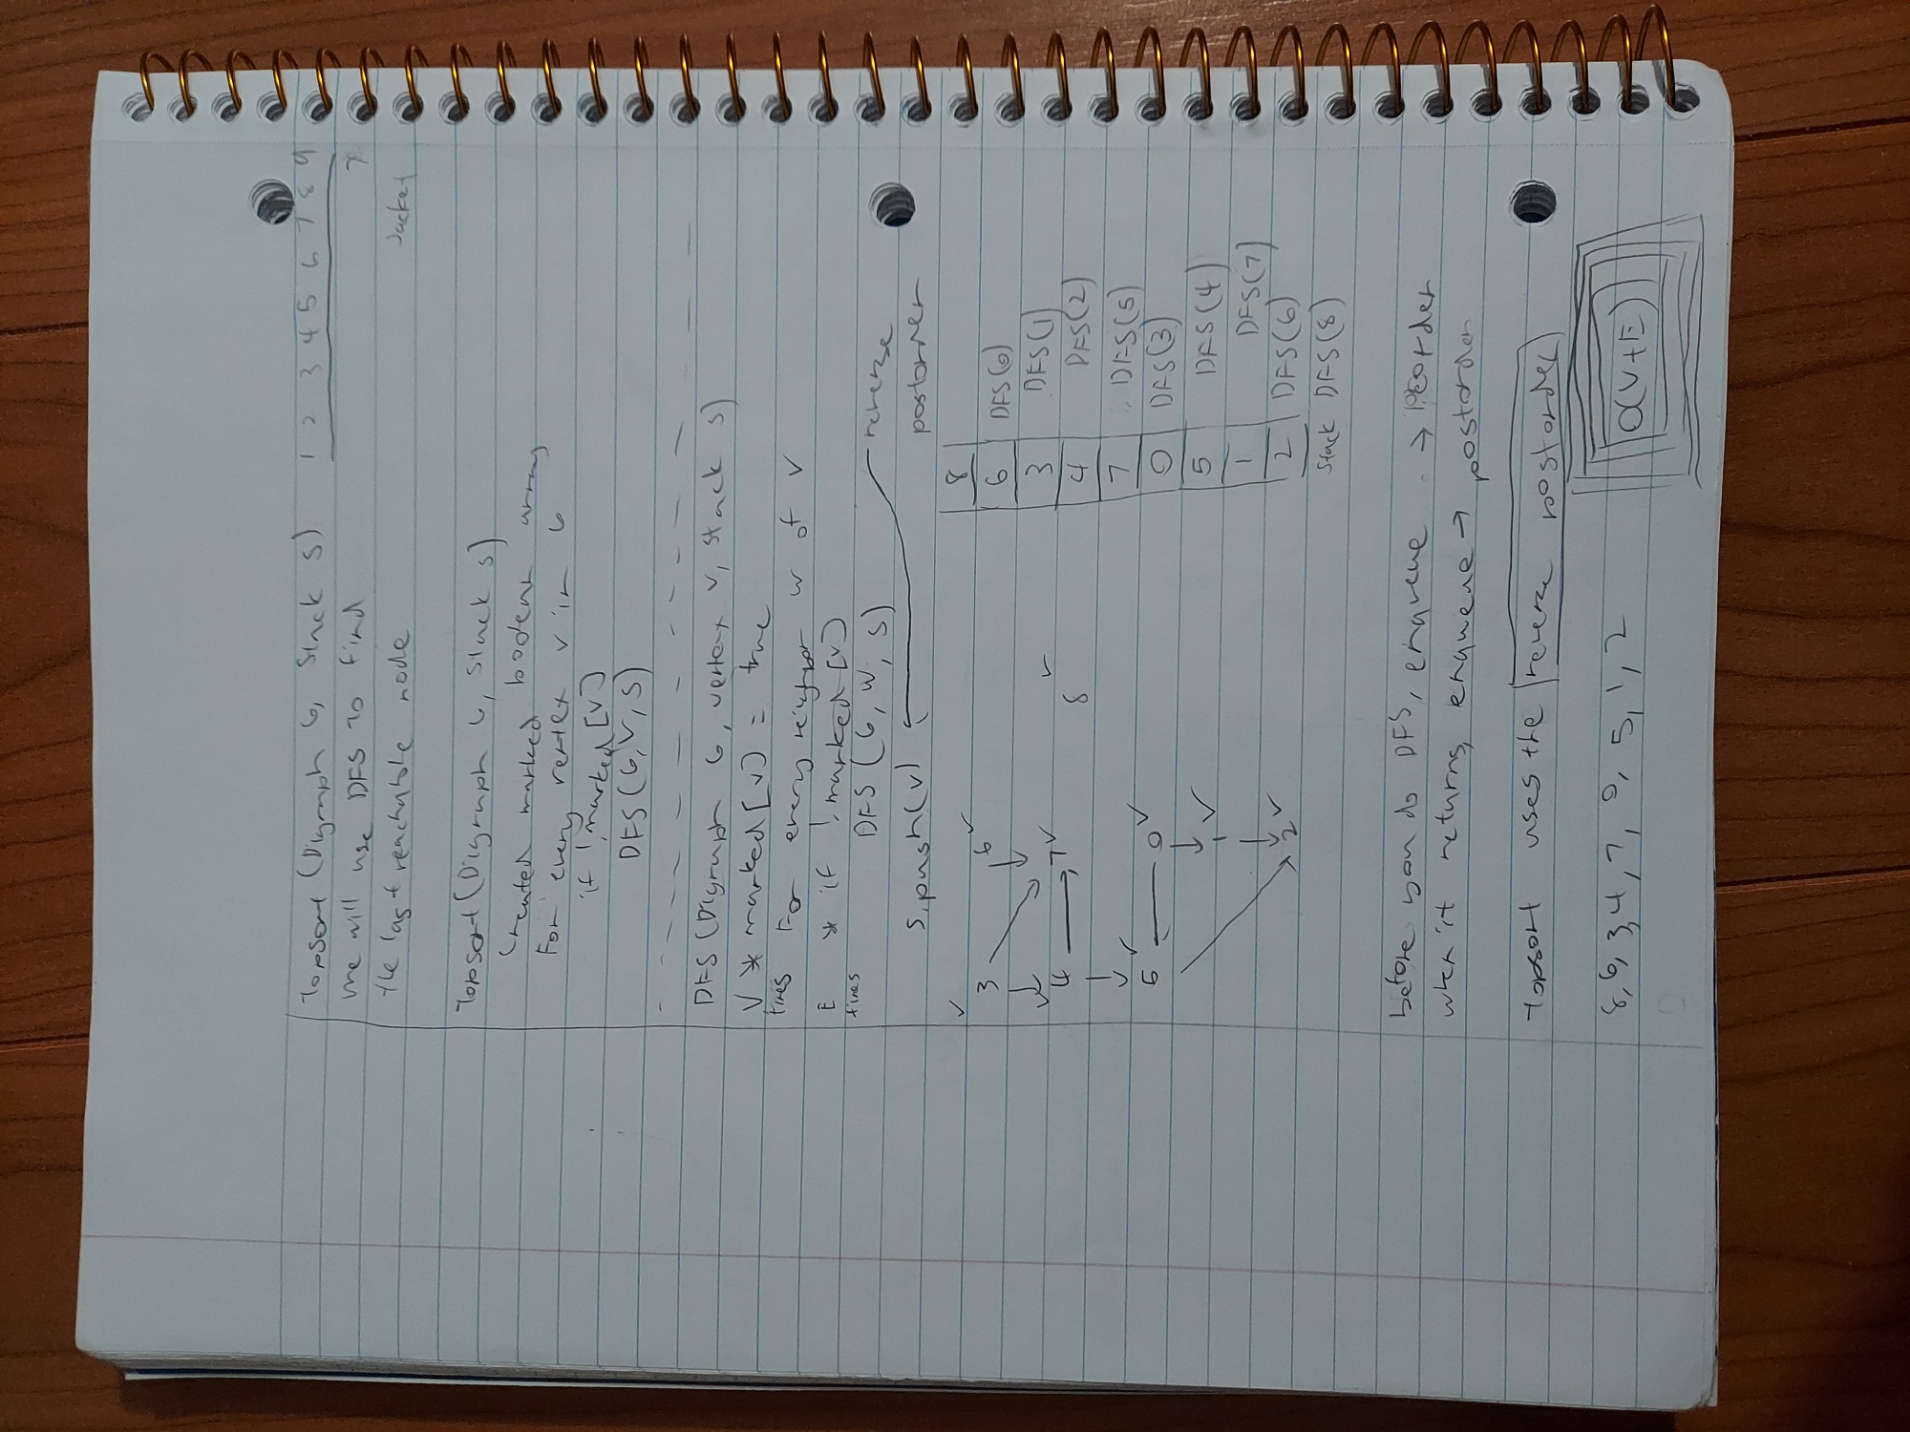 Topsort (Digraph G, Stack S) 1 2 3 4 5 6 7 8 9
we will use DFS to find 7
the last reachable node Jacket
Topsort (Digraph G, Stack S)
Created marked boolean array
For every vertex v in G
if !marked[v]
DFS(G,V,S)
DFS(Digraph G, vertex v, stack S)
V * marked[v] = true
times For every neighbor w of v
E * if !marked[v]
times DFS(G,W,S) reverse
S.push(v) postorder
8
3 6 6 DFS(0)
3 DFS(1)
4 7 8 4 DFS(2)
7 DFS(5)
5 0 0 DFS(3)
1 5 DFS(4)
1 DFS(7)
2 2 DFS(6)
Stack DFS(8)
before you do DFS, enqueue → preorder
when it returns, enqueue → postorder
topsort uses the reverse postorder
8, 6, 3, 4, 7, 0, 5, 1, 2 O(V+E)